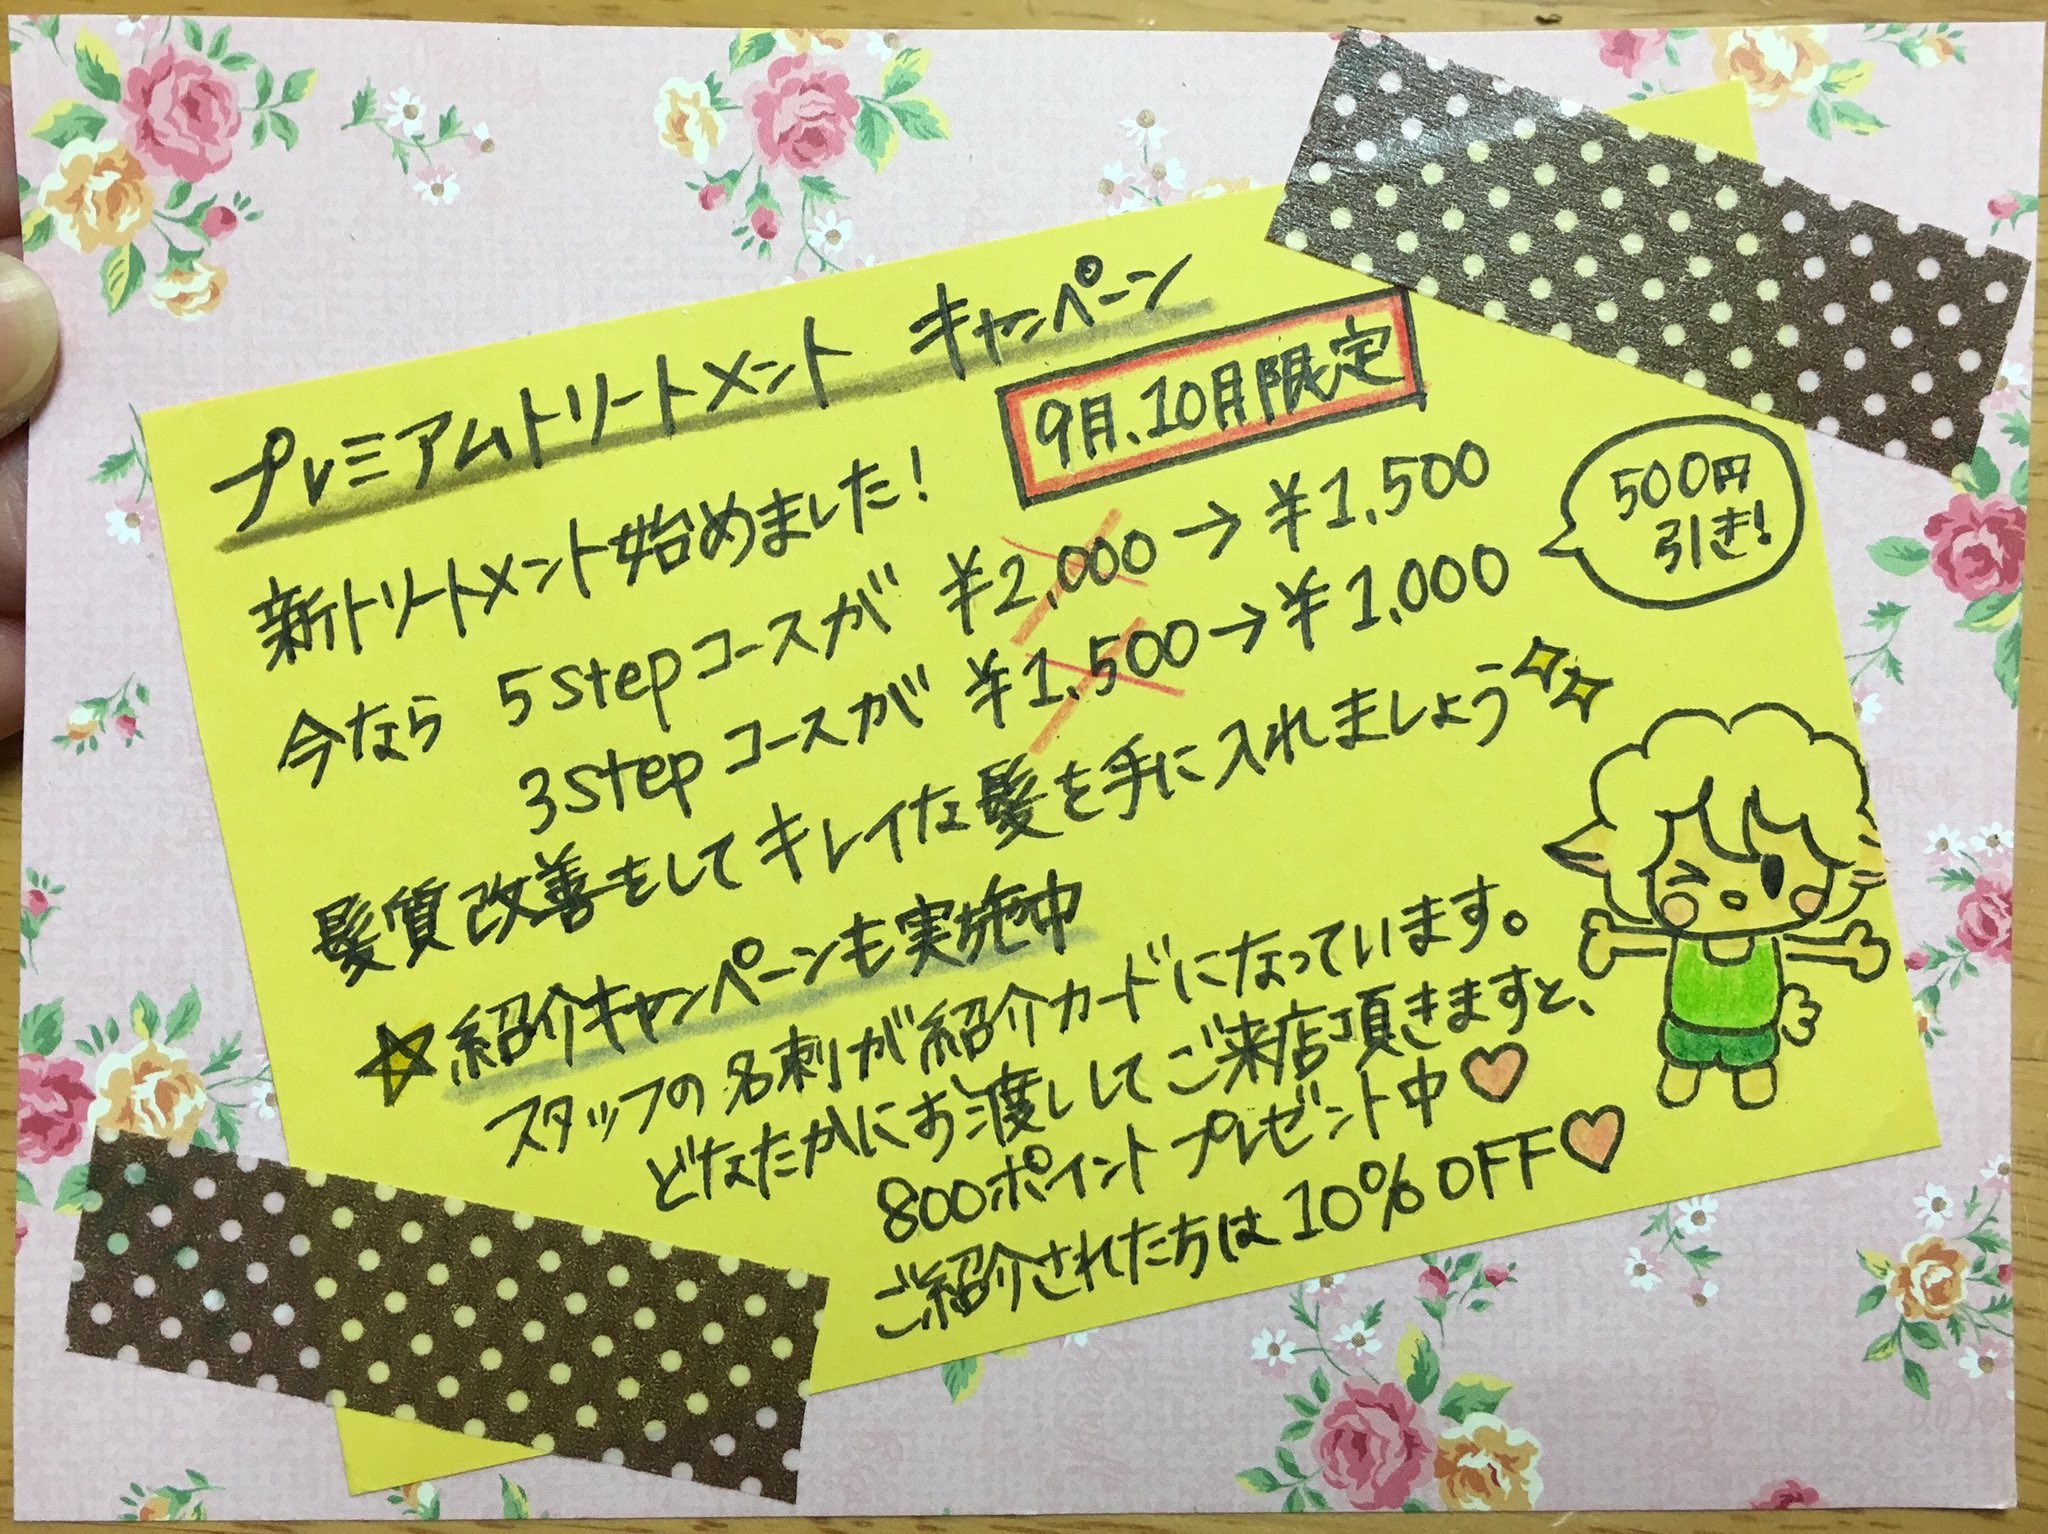 プレミアムトリートメント キャンペーン
9月、10月限定
新トリートメント始めました!
今なら 5stepコースが ¥2,000→¥1,500
3stepコースが ¥1,500→¥1,000
500円
引き!
髪質改善をしてキレイな髪を手に入れましょう
☆紹介キャンペーンも実施中
スタッフの名刺が紹介カードになっています。
どなたかにお渡ししてご来店頂きますと、
800ポイントプレゼント中♡
ご紹介された方は10%OFF♡